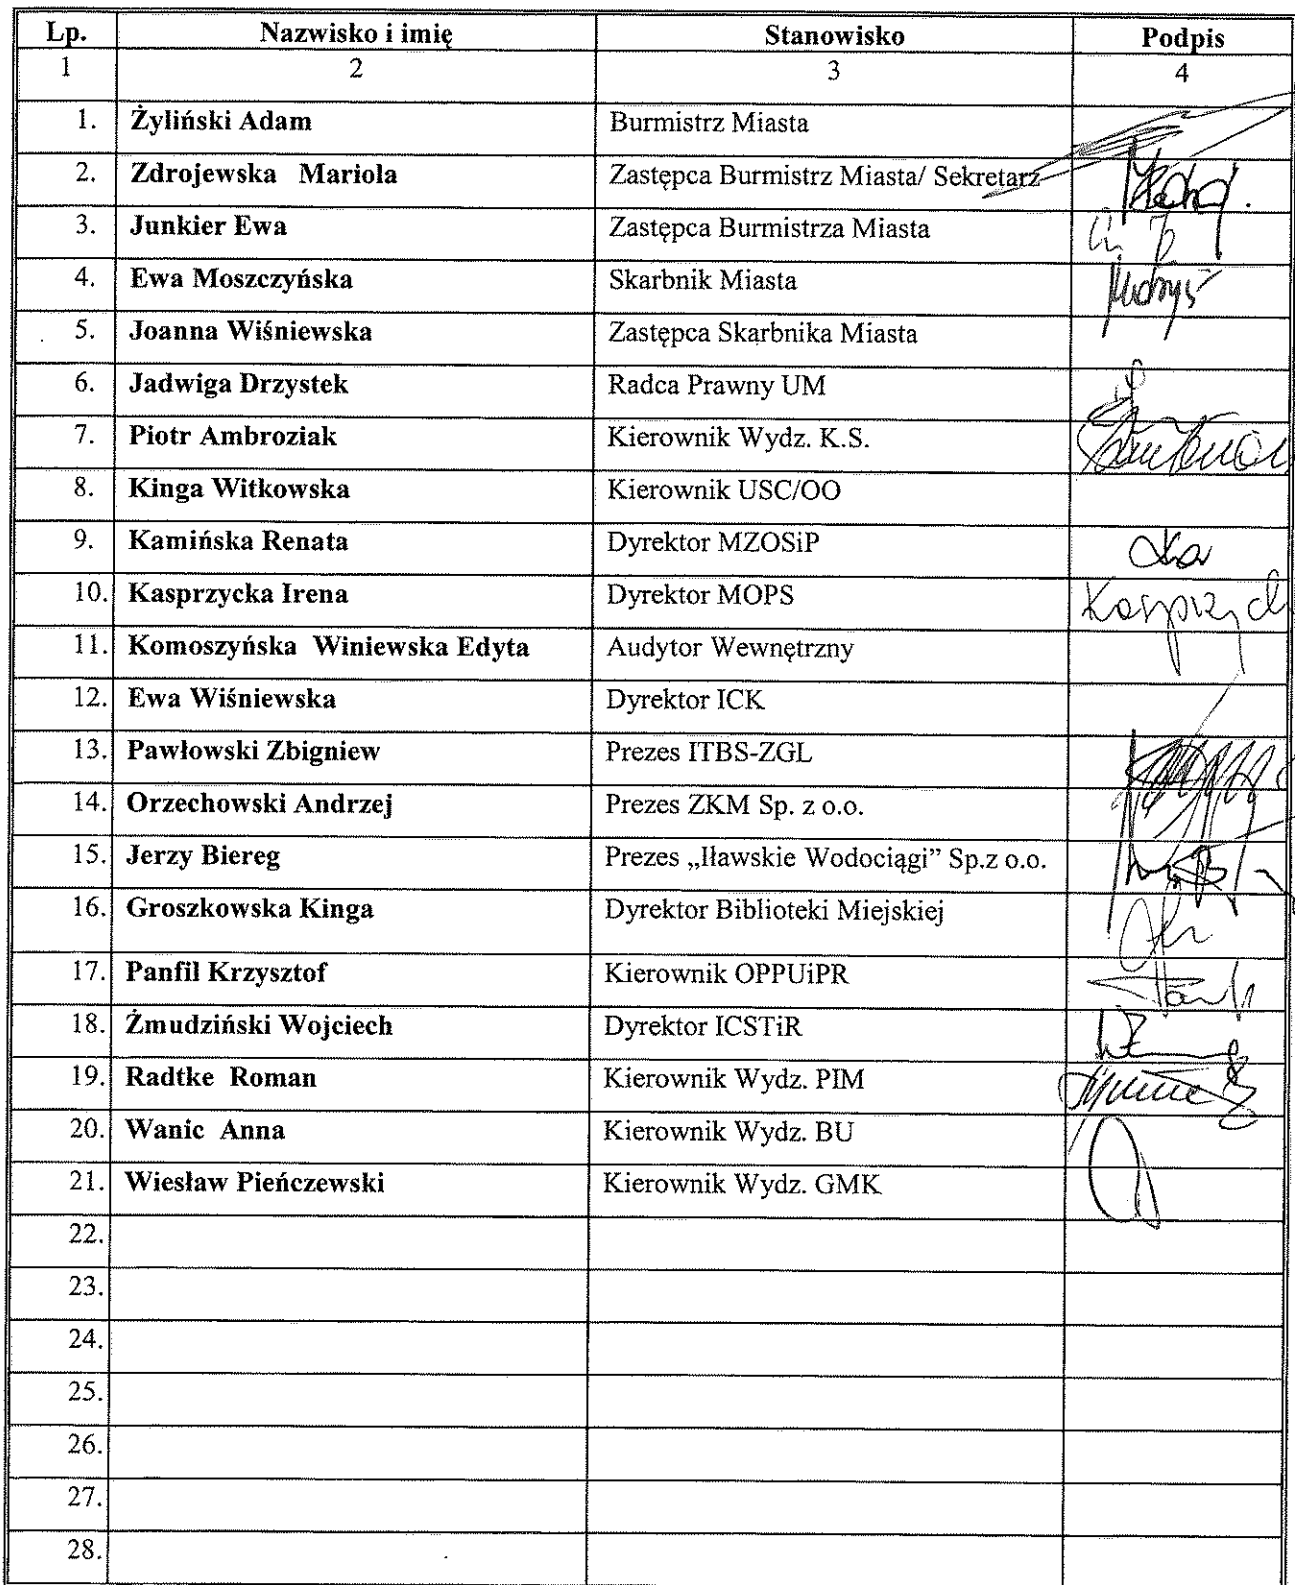 Lp. Nazwisko i imię Stanowisko Podpis
1 2 3 4
1. Żyliński Adam Burmistrz Miasta
2. Zdrojewska Mariola Zastępca Burmistrz Miasta/ Sekretarz
3. Junkier Ewa Zastępca Burmistrza Miasta
4. Ewa Moszczyńska Skarbnik Miasta
5. Joanna Wiśniewska Zastępca Skarbnika Miasta
6. Jadwiga Drzystek Radca Prawny UM
7. Piotr Ambroziak Kierownik Wydz. K.S.
8. Kinga Witkowska Kierownik USC/OO
9. Kamińska Renata Dyrektor MZOSiP
10. Kasprzycka Irena Dyrektor MOPS
11. Komoszyńska Winiewska Edyta Audytor Wewnętrzny
12. Ewa Wiśniewska Dyrektor ICK
13. Pawłowski Zbigniew Prezes ITBS-ZGL
14. Orzechowski Andrzej Prezes ZKM Sp. z o.o.
15. Jerzy Biereg Prezes „Iławskie Wodociągi" Sp.z o.o.
16. Groszkowska Kinga Dyrektor Biblioteki Miejskiej
17. Panfil Krzysztof Kierownik OPPUiPR
18. Żmudziński Wojciech Dyrektor ICSTiR
19. Radtke Roman Kierownik Wydz. PIM
20. Wanic Anna Kierownik Wydz. BU
21. Wiesław Pieńczewski Kierownik Wydz. GMK
22.
23.
24.
25.
26.
27.
28.